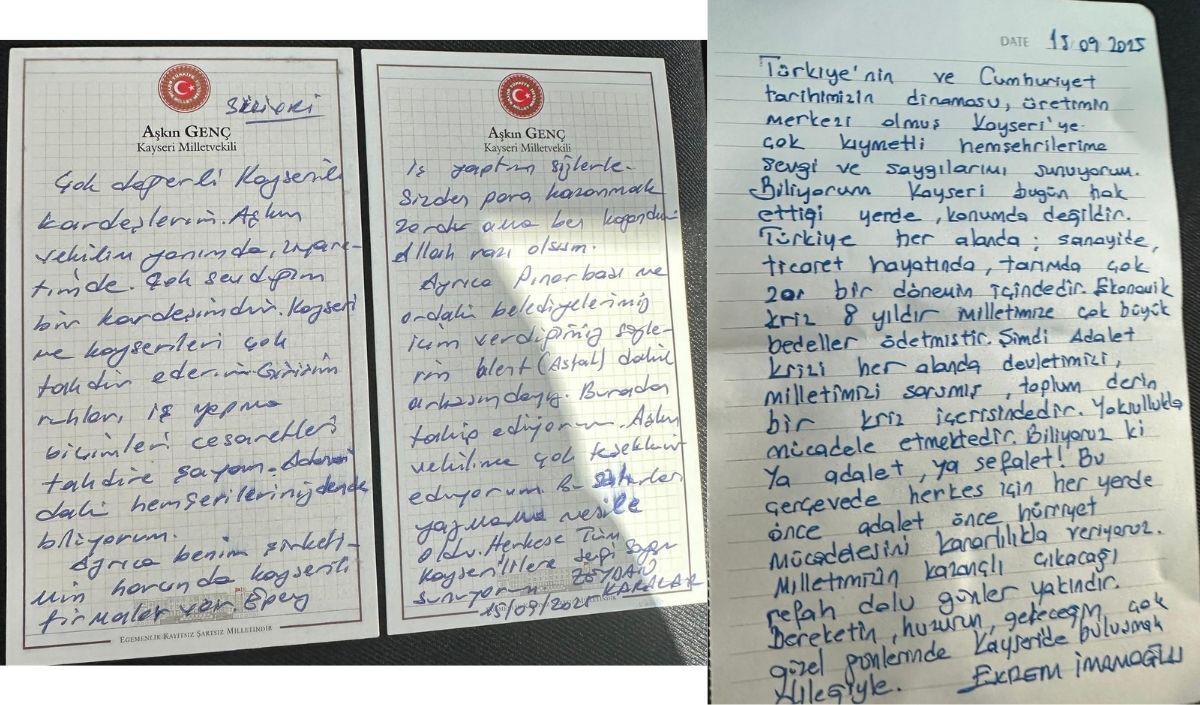 SİLİVRİ
Aşkın GENÇ
Kayseri Milletvekili
Çok değerli Kayserili
kardeşlerim. Aşkın
vekilim yanımda, ziyare-
timde. Çok sevdiğim
bir kardeşimdir. Kayseri
ve kayserileri çok
takdir ederim. Girişim
ruhları, iş yapma
biçimleri cesaretleri
takdire şayan. Adana
daki hemşerilerimizdende
biliyorum.
Ayrıca benim şirketi-
min horunda kayserili
firmalar var. Epey
EGEMENLİK KAYITSIZ ŞARTSIZ MİLLETİNDİR
Aşkın GENÇ
Kayseri Milletvekili
iş yaptım sizlerle.
Sizden para kazanmak
zordur ama ben kazandım
Allah razı olsun.
Ayrıca Pınarbaşı ve
ordaki belediyelerimiz
için verdiğimiz sözle-
rin (Asfalt) dahil
arkasındayız. Buradan
takip ediyorum. Aşkın
vekilime çok teşekkür
ediyorum. Bu satırları
yazmama vesile
oldu. Herkese Tüm
Kayserililere sevgi saygı
sunuyorum ZEYDAN
15/09/2025 KARALAR
DATE 15 09 2025
Türkiye'nin ve Cumhuriyet
tarihimizin dinamosu, üretimin
merkezi olmuş Kayseri'ye
çok kıymetli hemşehrilerime
sevgi ve saygılarımı sunuyorum.
Biliyorum Kayseri bugün hak
ettiği yerde, konumda değildir.
Türkiye her alanda; sanayide,
ticaret hayatında, tarımda çok
zor bir dönemin içindedir. Ekonomik
kriz 8 yıldır milletimize çok büyük
bedeller ödetmiştir. Şimdi Adalet
krizi her alanda devletimizi,
milletimizi sarsmış, toplum derin
bir kriz içerisindedir. Yoksullukla
mücadele etmektedir. Biliyoruz ki
Ya adalet, ya sefalet! Bu
çerçevede herkes için her yerde
önce adalet önce hürriyet
mücadelesini kararlılıkla veriyoruz.
Milletimizin kazançlı çıkacağı
refah dolu günler yakındır.
Bereketin, huzurun, geleceğin, çok
güzel günlerinde Kayseride buluşmak
dileğiyle. EKREM İMAMOĞLU